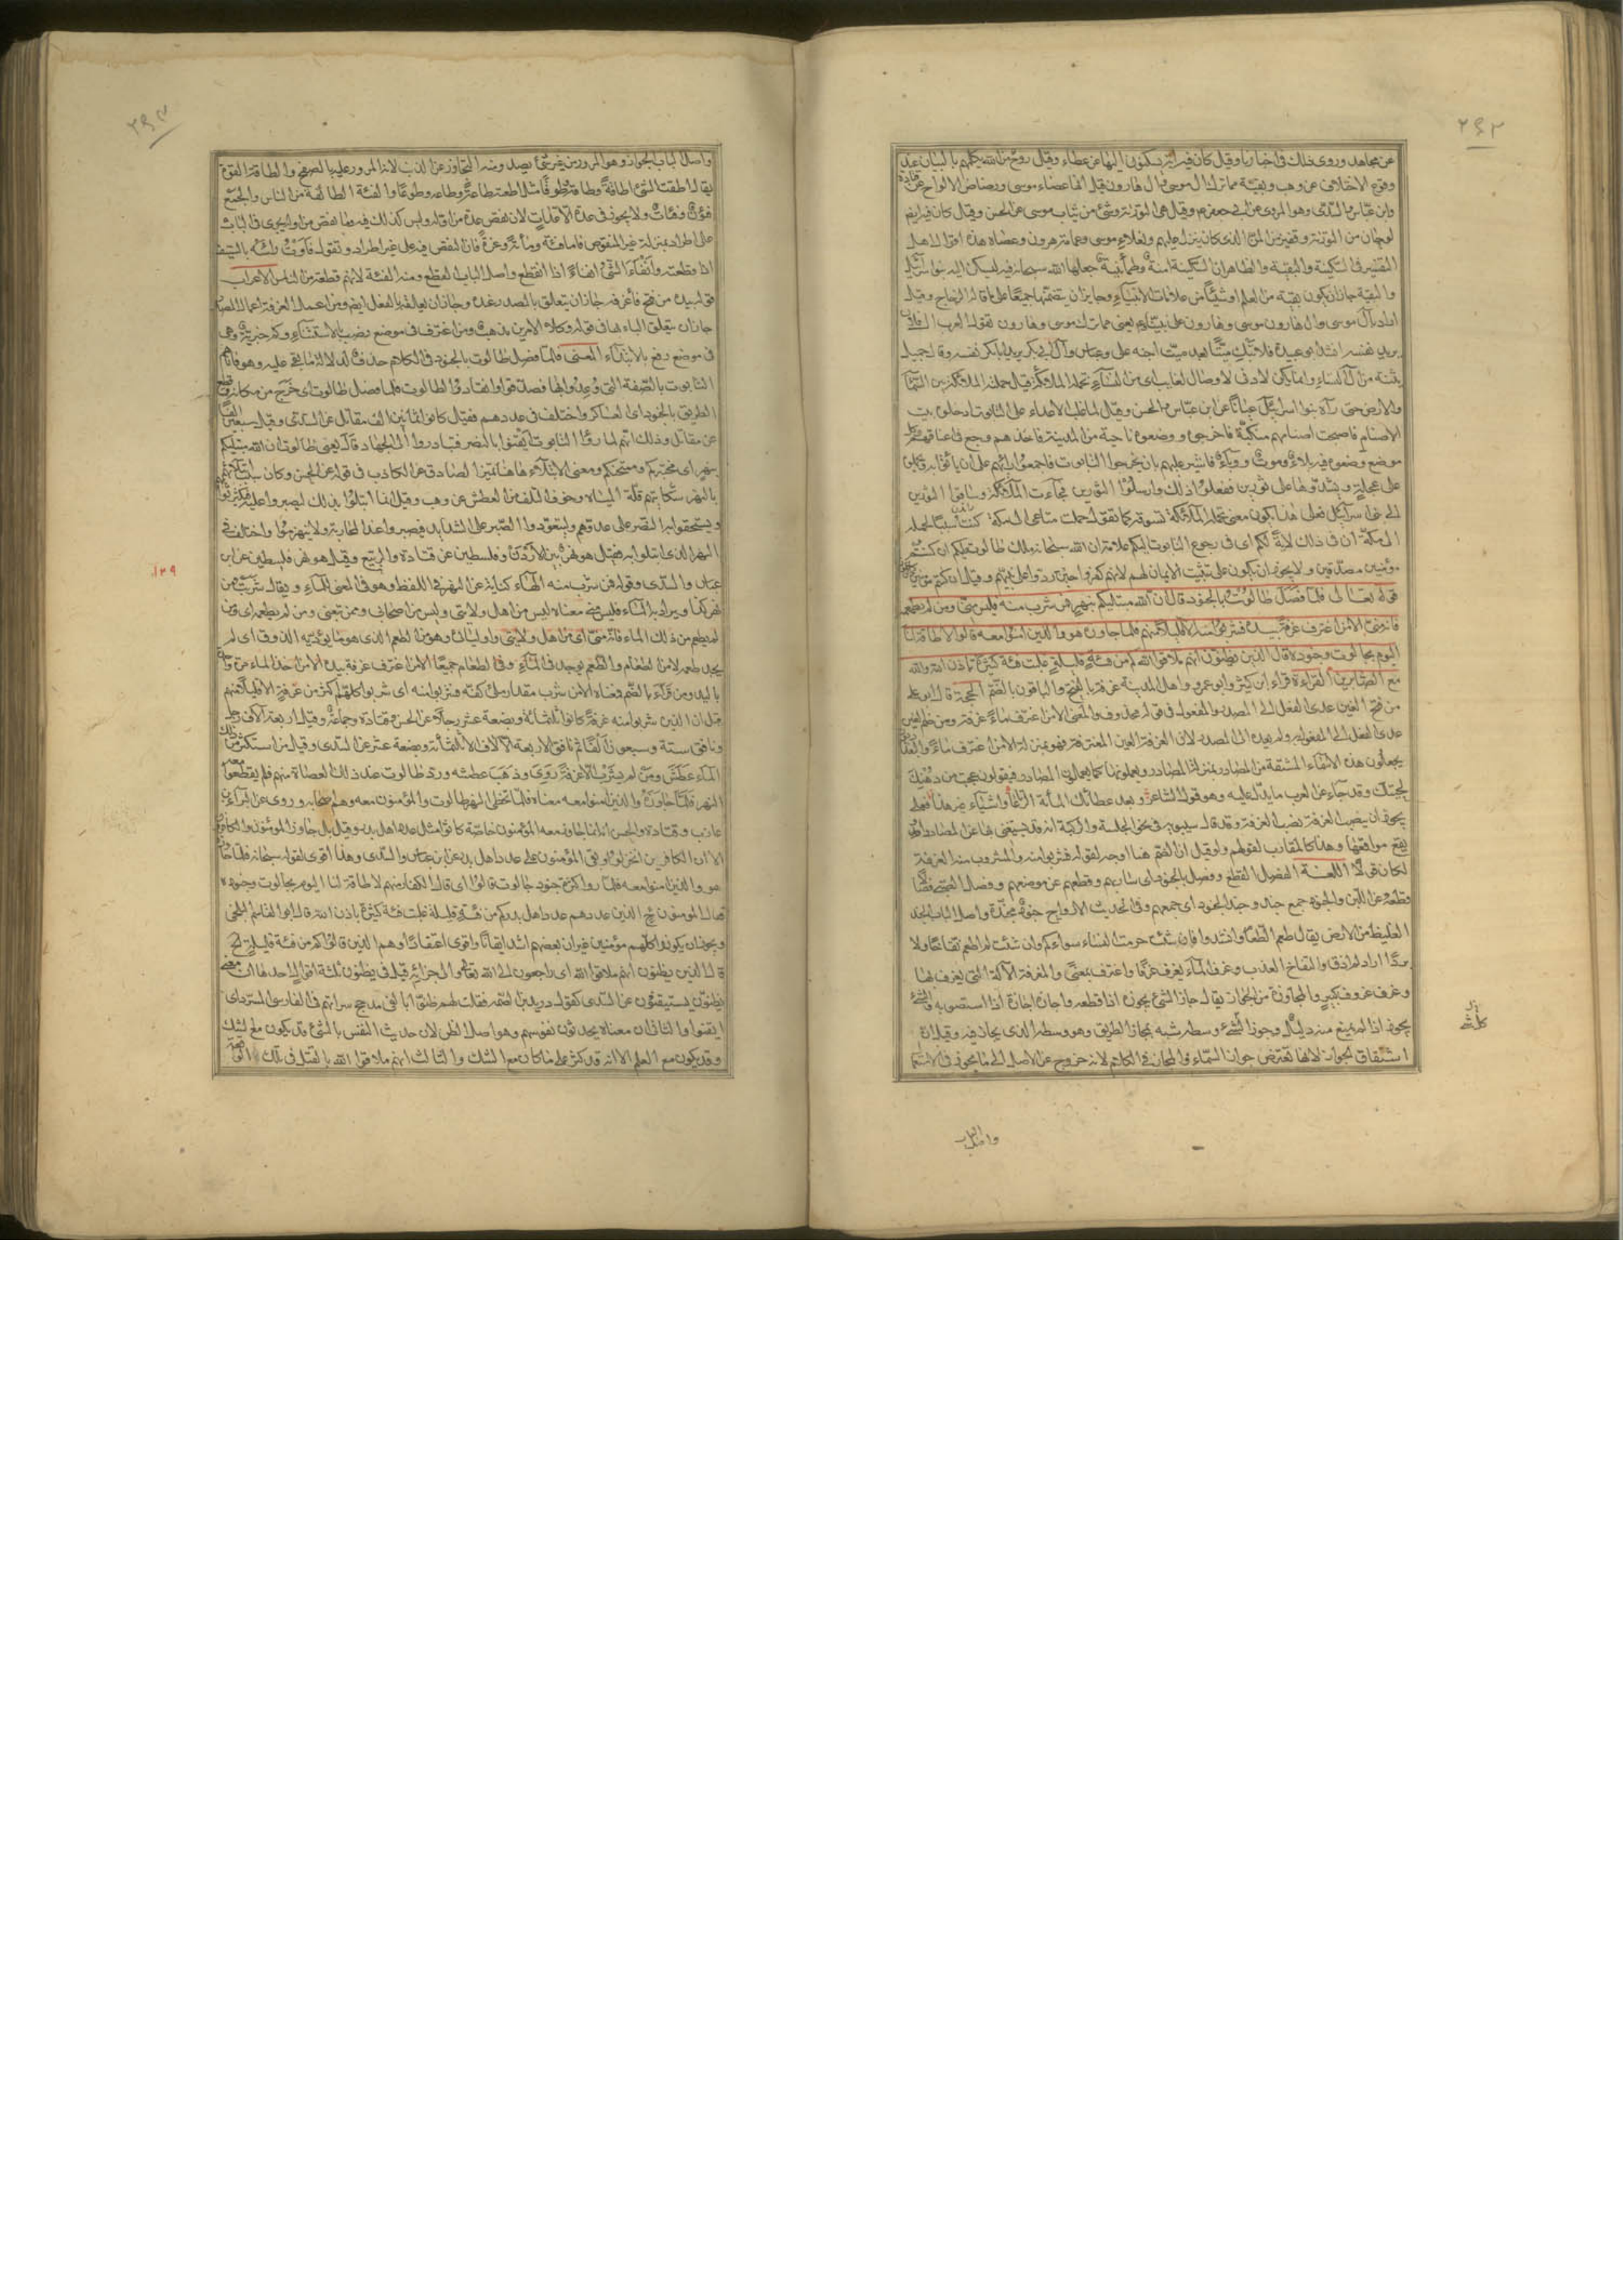 ٢٦٢
عن مجاهد وروى ذلك في اخبارنا وقيل كان فيه آية يسكنون اليها عن عطاء وقيل روح من الله يكلمهم بالبيان عند
وقوع الاختلاف عن وهب وبقية مما ترك آل موسى وآل هارون قيل انها عصاء موسى ورضاض الالواح عن قتادة
وابن عباس والسدى وهو المروى عن ابى جعفر م وقيل هى التورية وشئ من ثياب موسى عن الحسن وقيل كان فيه ايضا
لوحان من التورية وقفيز من المن الذى كان ينزل عليهم ونعلا موسى وعمامة هرون وعصاه هذه اقوال اهل
التفسير فى السكينة والبقية والظاهر ان السكينة امنة وطمأنينة جعلها الله سبحانه فيه ليسكن اليه بنوا سرائيل
والبقية جائز ان يكون بقية من العلم او شيئًا من علامات الانبياء وجايز ان يتضمنها جميعًا على ما قاله الزجاج وقيل
اراد بآل موسى وآل هارون موسى وهارون على نبينا وعليهم يعنى مما ترك موسى وهارون تقول العرب آل فلان
يريد نفسه انشد ابو عبيدة فلا تبك ميتًا بعد ميت اجنه على وعباس وآل ابى بكر يريد ابا بكر نفسه وقال جميل
بثينة من آل النساء وانما يكن لادنى لا وصال لغايب اى من النساء تحمله الملائكة قيل حملته الملائكة بين السماء
والارض حتى رآه بنوا اسرائيل عيانًا عن ابن عباس والحسن وقيل لما غلب الاعداء على التابوت ادخلوه بيت
الاصنام فاصبحت اصنامهم منكبة فاخرجوه ووضعوه ناحية من المدينة فاخذهم وجع فى اعناقهم وكل
موضع وضعوه فيه بلاء وموت ووباء فاشير عليهم بان يخرجوا التابوت فاجمع رأيهم على ان يأتوا به ويحملوه
على عجلة ويشدوها على ثورين ففعلوا ذلك وارسلوا الثورين فجاءت الملائكة وساقوا الثورين
الى بنى اسرائيل فعلى هذا يكون معنى تحمله الملائكة تسوقه كما تقول حملت متاعى الى مكة كنت سببًا لحمله
الى مكة ان فى ذلك لاية لكم اى فى رجوع التابوت اليكم علامة ان الله سبحانه ملك طالوت عليكم ان كنتم
مؤمنين مصدقين ولا يجوز ان يكون على تثبيت الايمان لهم لانهم كفروا حين ردوا على نبيهم وقيل ان كنتم مؤمنين
قوله تعالى فلما فصل طالوت بالجنود قال ان الله مبتليكم بنهر فمن شرب منه فليس منى ومن لم يطعمه
فانه منى الا من اغترف غرفة بيده فشربوا منه الا قليلا منهم فلما جاوزه هو والذين امنوا معه قالوا لا طاقة لنا
اليوم بجالوت وجنوده قال الذين يظنون انهم ملاقوا الله كم من فئة قليلة غلبت فئة كثيرة باذن الله والله
مع الصابرين القراءة قراء ابن كثير وابو عمرو واهل المدينة غرفة بالفتح والباقون بالضم الحجة قال ابو على
من فتح الغين عدى الفعل الى المصدر والمفعول فى قوله محذوف والمعنى الا من اغترف ماء غرفة ومن ضم الغين
عدى الفعل الى المفعول به ولم يعده الى المصدر لان الغرفة العين المغترفة فهو بمنزلة الا من اغترف ماء والبغداديون
يجعلون هذه الاسماء المشتقة من المصادر بمنزلة المصادر ويعملونها كما يعملون المصادر فيقولون عجبت من دهنك
لحيتك وقد جاء عن العرب ما يدل عليه وهو قول الشاعر وبعد عطائك المأة الرتاعا واشياء غير هذا فعلى
يجوز ان ينصب الغرفة نصب الغرفة وقد قال سيبويه فى نحو الجلسة والركبة انه قد يستغنى بها عن المصادر او
يقع موقعها وهذا كالمقارب لقولهم ولو قيل ان الضم هنا اوجه لقوله فشربوا منه والمشروب منه الغرفة
لكان قولا اللغة الفصل القطع وفصل بالجنود اى سار بهم وقطعهم عن موضعهم وفصل الصبى فصالا
وقطعه عن اللبن والجنود جمع جند وجند الجنود اى جمعهم وفى الحديث الارواح جنود مجندة واصل الباب الجند
الغليظ من الارض يقال طعم الطعم وانشدوا فان شئت حرمت النساء سواكم وان شئت لم اطعم نقاخًا ولا
بردًا اراد لم اذق والنقاخ العذب وغرف الماء يغرف غرفًا واغترف بمعنى والمغرفة الآلة التى يغرف بها
وغرف غروف كبير والمجاوزة من الجواز يقال جاز الشئ يجوزه اذا قطعه واجازه اجازة اذا استصوبه والشئ
يجوز اذا لم يمنع منه دليل وجوز الشئ وسطه شبه بمجاز الطريق وهو وسطه الذى يجاز فيه وقيل ان
اشتقاق الجوزاء لانها تعترض جوز السماء والمجاز فى الكلام لانه خروج عن الاصل الى ما يجوز فى الاستعمال
واصل الباب
٢٦٣
واصل الباب الجواز وهو المرور من غير شئ يصد ومنه التجاوز عن الذنب لانه المرور عليه بالصفح والطاقة القوة
يقال اطقت الشئ اطاقة وطاقة وطوقًا مثل اطعت طاعة وطاعة وطوعًا والفئة الطائفة من الناس والجمع
فئون وفئات ولا يجوز فى عدة الا عدات لان نقص عدة من اوله وليس كذلك فئة وما نقص من اوله يجرى فى الباب
على اطراد بمنزلة غير المنقوص فاما فئة ومأة وعزة فان النقص فيه على غير اطراد وتقول فأوت رأسه بالسيف
اذا قطعته وانفاء الشئ انفياء اذا انقطع واصل الباب القطع ومنه الفئة لانهم قطعة من الناس الاعراب
قوله بيده من فتح فاء غرفة جاز ان يتعلق بالمصدر عنده وجاز ان يعلقه بالفعل ايضا ومن اعمل الغرفة اعمال المصدر
جاز ان يتعلق الباء بها فى قوله وكلا الامرين مذهب ومن اغترف فى موضع نصب بالاستثناء وكم خبرية وهى
فى موضع رفع بالابتداء المعنى فلما فصل طالوت بالجنود فى الكلام حذف لدلالة ما بقى عليه وهو فاتاهم
التابوت بالصفة التى وعدوا بها فصدقوا وانقادوا لطالوت فلما فصل طالوت اى خرج من مكانه وقطع
الطريق بالجنود اى العساكر واختلف فى عددهم فقيل كانوا ثمانين الف مقاتل عن السدى وقيل سبعين الفًا
عن مقاتل وذلك انهم لما رؤا التابوت ايقنوا بالنصر فبادروا الى الجهاد قال يعنى طالوت ان الله مبتليكم
بنهر اى مختبركم وممتحنكم ومعنى الابتلاء هاهنا تميز الصادق عن الكاذب فى قوله عن الحسن وكان سبب ابتلائهم
بالنهر شكايتهم قلة المياه وخوف التلف من العطش عن وهب وقيل انما ابتلوا بذلك ليصبروا عليه فيكثر ثوابهم
ويستحقوا به النصر على عدوهم وليتعودوا الصبر على الشدايد فيصبروا عند المحاربة ولا ينهزموا واختلف فى
النهر الذى ابتلوا به فقيل هو نهر بين الاردن وفلسطين عن قتادة والربيع وقيل هو نهر فلسطين عن ابن
عباس والسدى وقوله فمن شرب منه الهاء كناية عن النهر فى اللفظ وهو فى المعنى للماء ويقال شربت من
نهر كذا ويراد به الماء فليس منى معناه ليس من اهل ولايتى وليس من اصحابى وممن تبعنى ومن لم يطعمه اى ومن
لم يطعم من ذلك الماء فانه منى اى من اهل ولايتى واوليائى وهو من الطعم الذى هو ما يؤديه الذوق اى لم
يجد طعمه لا من الطعام والطعم يوجد فى الماء وفى الطعام جميعًا الا من اغترف غرفة بيده الا من اخذ الماء مرة واحدة
باليد ومن قرأه بالضم فمعناه الا من شرب مقدار ملئ كفه فشربوا منه اى شربوا كلهم اكثر من غرفة الا قليلا منهم
قيل ان الذين شربوا منه غرفة كانوا ثلثمائة وبضعة عشر رجلا عن الحسن وقتادة وجماعة وقيل اربعة آلاف رجل
ونافق ستة وسبعون الفًا ثم نافق الاربعة الآلاف الا ثلثمأة وبضعة عشر عن السدى وقيل من استكثر من ذلك
الماء عطش ومن لم يشرب الا غرفة روى وذهب عطشه ورد طالوت عند ذلك العصاة منهم فلم يقطعوا معه
النهر فلما جاوزه والذين امنوا معه معناه فلما تخطى النهر طالوت والمؤمنون معه وهم اصحابه وروى عن البراء بن
عازب وقتادة والحسن انه انما جاوز معه المؤمنون خاصة كانوا مثل عدد اهل بدر وقيل بل جاوز المؤمنون والكافرون
الا ان الكافرين انخزلوا وبقى المؤمنون على عدد اهل بدر عن ابن عباس والسدى وهذا اقوى لقوله سبحانه فلما جاوزه
هو والذين امنوا معه فلما رؤا كثرة جنود جالوت قالوا اى قال الكفار منهم لا طاقة لنا اليوم بجالوت وجنوده
فقال المؤمنون ح الذين عددهم عدد اهل بدر كم من فئة قليلة غلبت فئة كثيرة باذن الله قال ابو القاسم البلخى
ويجوز ان يكونوا كلهم مؤمنين غير ان بعضهم اشد ايقانًا واقوى اعتقادًا وهم الذين قالوا كم من فئة قليلة الخ
قال الذين يظنون انهم ملاقوا الله اى راجعون الى الله تعالى والى جزائه قيل فى يظنون ثلثة اقوال احدها ان معنى
يظنون يستيقنون عن السدى كقول دريد بن الصمة فقلت لهم ظنوا بالفى مدجج سراتهم فى الفارسى المسرد اى
ايقنوا والثانى ان معناه يحدثون نفوسهم وهو اصل الظن لان حديث النفس بالشئ قد يكون مع الشك
وقد يكون مع العلم الا انه قد كثر على ما كان مع الشك والثالث انهم ملاقوا الله بالقتل فى تلك الوقعة
١٢٩